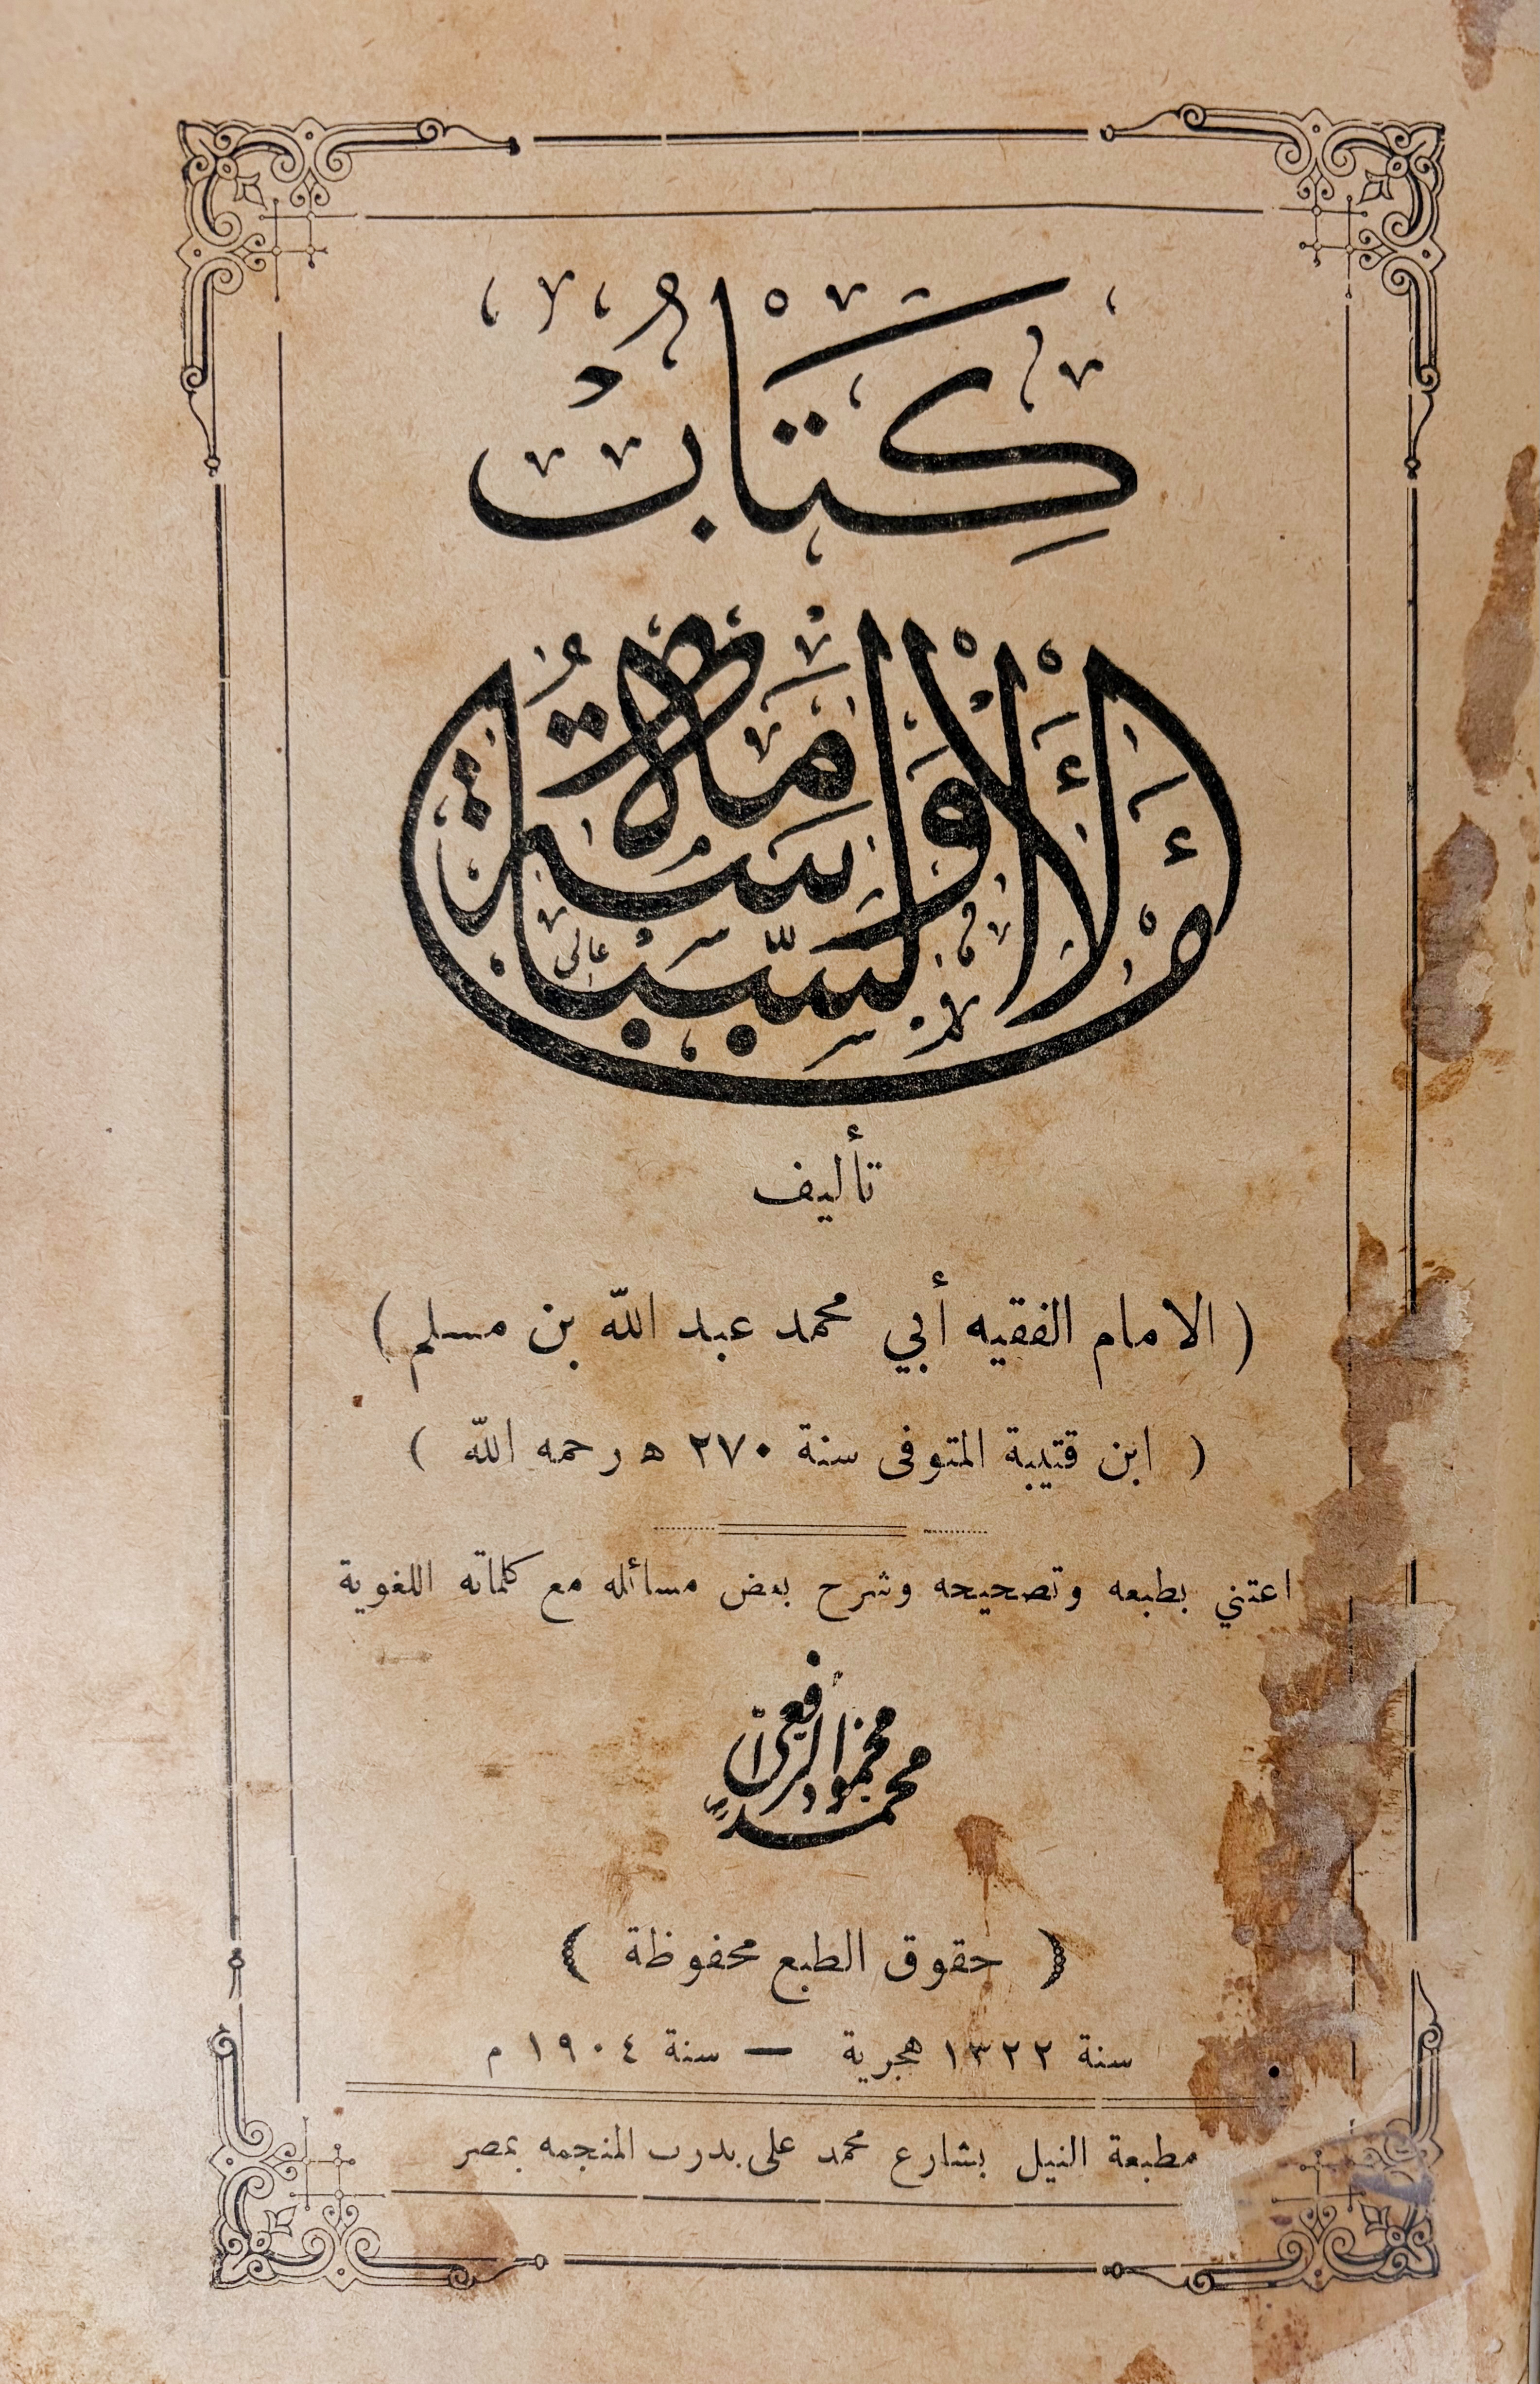 كِتَابُ
الأمامة والسياسة
تأليف
( الامام الفقيه أبي محمد عبد الله بن مسلم )
( ابن قتيبة المتوفى سنة ٢٧٠ ه رحمه الله )
اعتني بطبعه وتصحيحه وشرح بعض مسائله مع كلماته اللغوية
محمد محمود الرافعى
( حقوق الطبع محفوظة )
سنة ١٣٢٢ هجرية — سنة ١٩٠٤ م
مطبعة النيل بشارع محمد على بدرب المنجمه بمصر